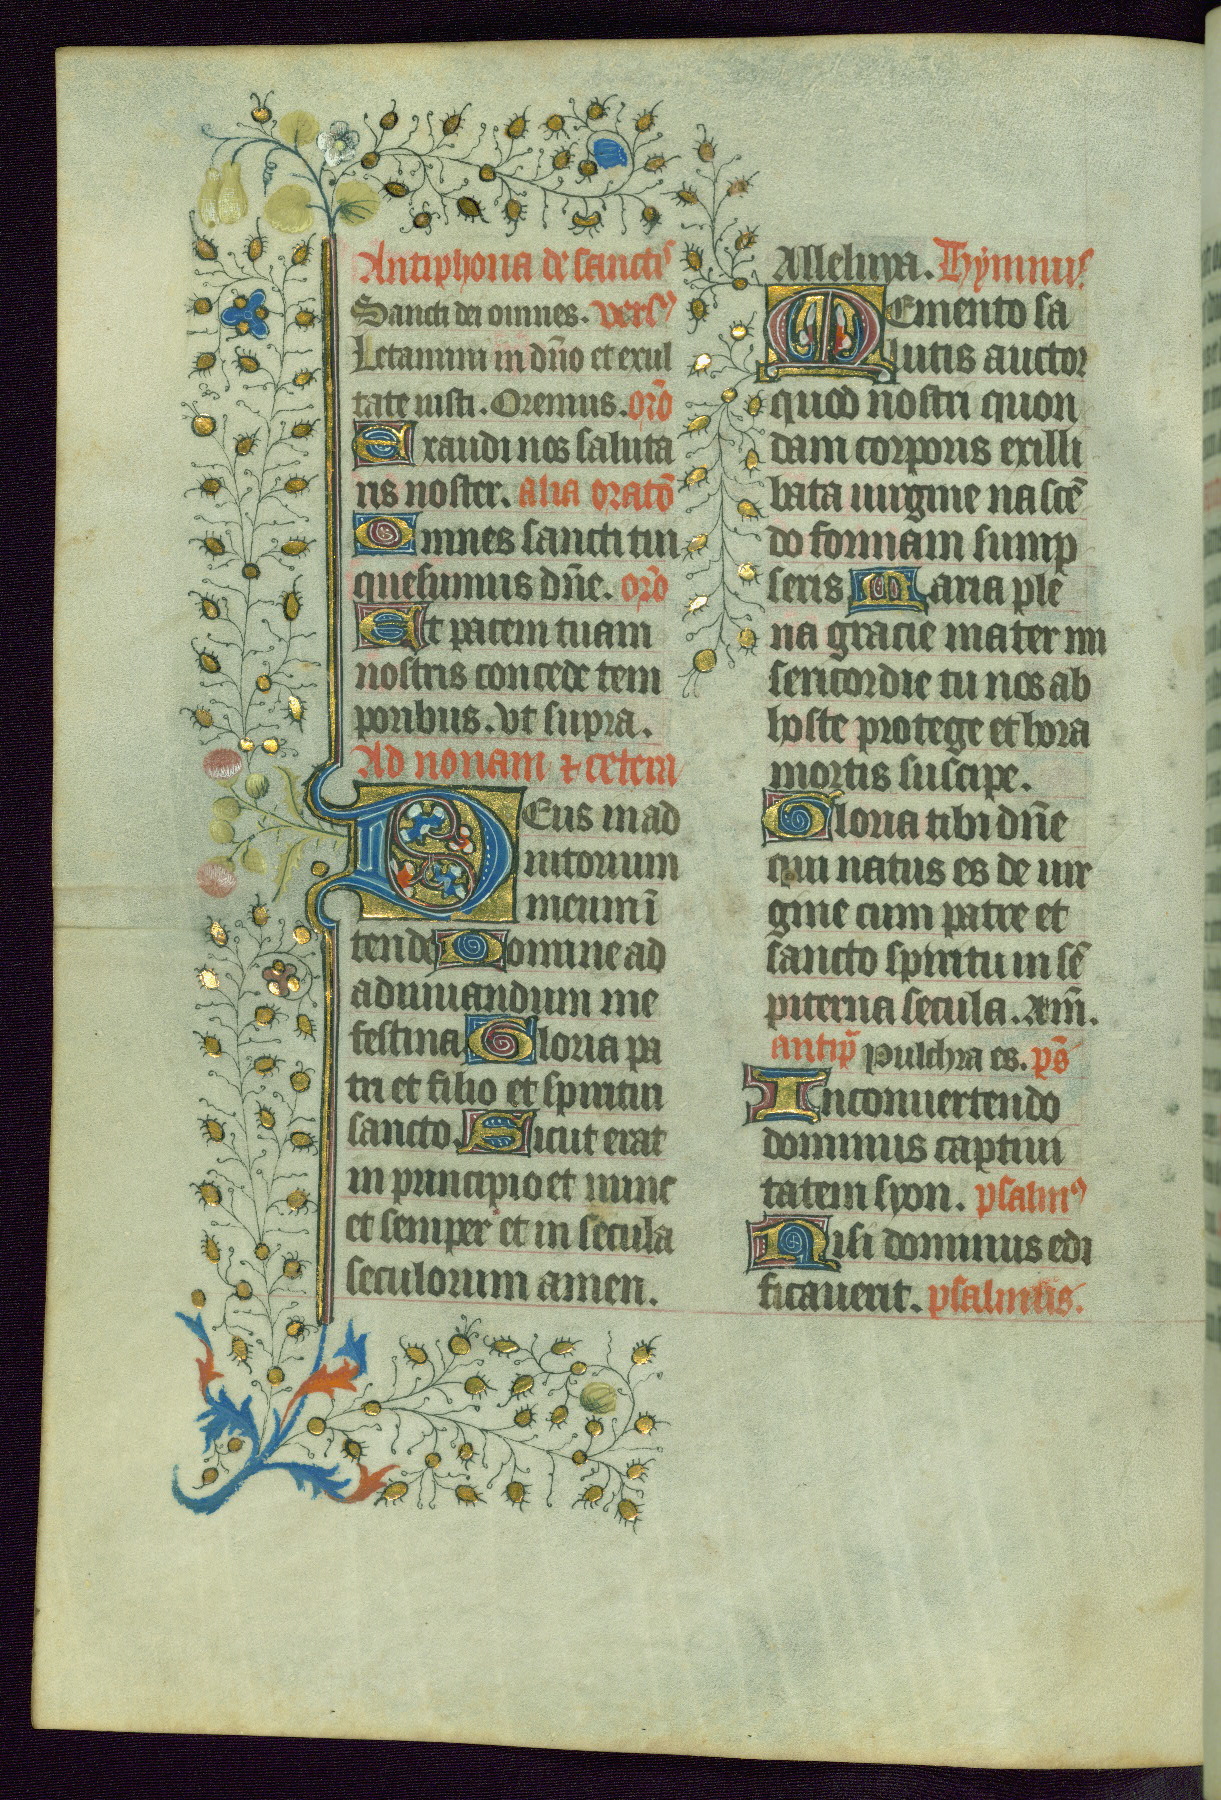 Antiphona de sanctis
Sancti dei omnes. versꝰ
Letamini in dn̄o et exul
tate iusti. Oremus. orō
Exaudi nos saluta
ris noster. alia oratō
Omnes sancti tui
quesumus dn̄e. orō
Et pacem tuam
nostris concede tem
poribus. Vt supra.
Ad nonam ⁊ cetera
Deus in ad
iutorium
meum ī
tende Domine ad
adiuuandum me
festina Gloria pa
tri et filio et spiritui
sancto. Sicut erat
in principio et nunc
et semper et in secula
seculorum amen.
Alleluya. Hymnus.
Memento sa
lutis auctor
quod nostri quon
dam corporis ex illi
bata uirgine nascē
do formam sump
seris Maria ple
na gracie mater mi
sericordie tu nos ab
hoste protege et hora
mortis suscipe.
Gloria tibi dn̄e
qui natus es de uir
gine cum patre et
sancto spiritu in sē
piterna secula. Am̄.
antip̄ Pulchra es. ps̄
In conuertendo
dominus captiui
tatem syon. psalmꝰ
Nisi dominus edi
ficauerit. psalmus.